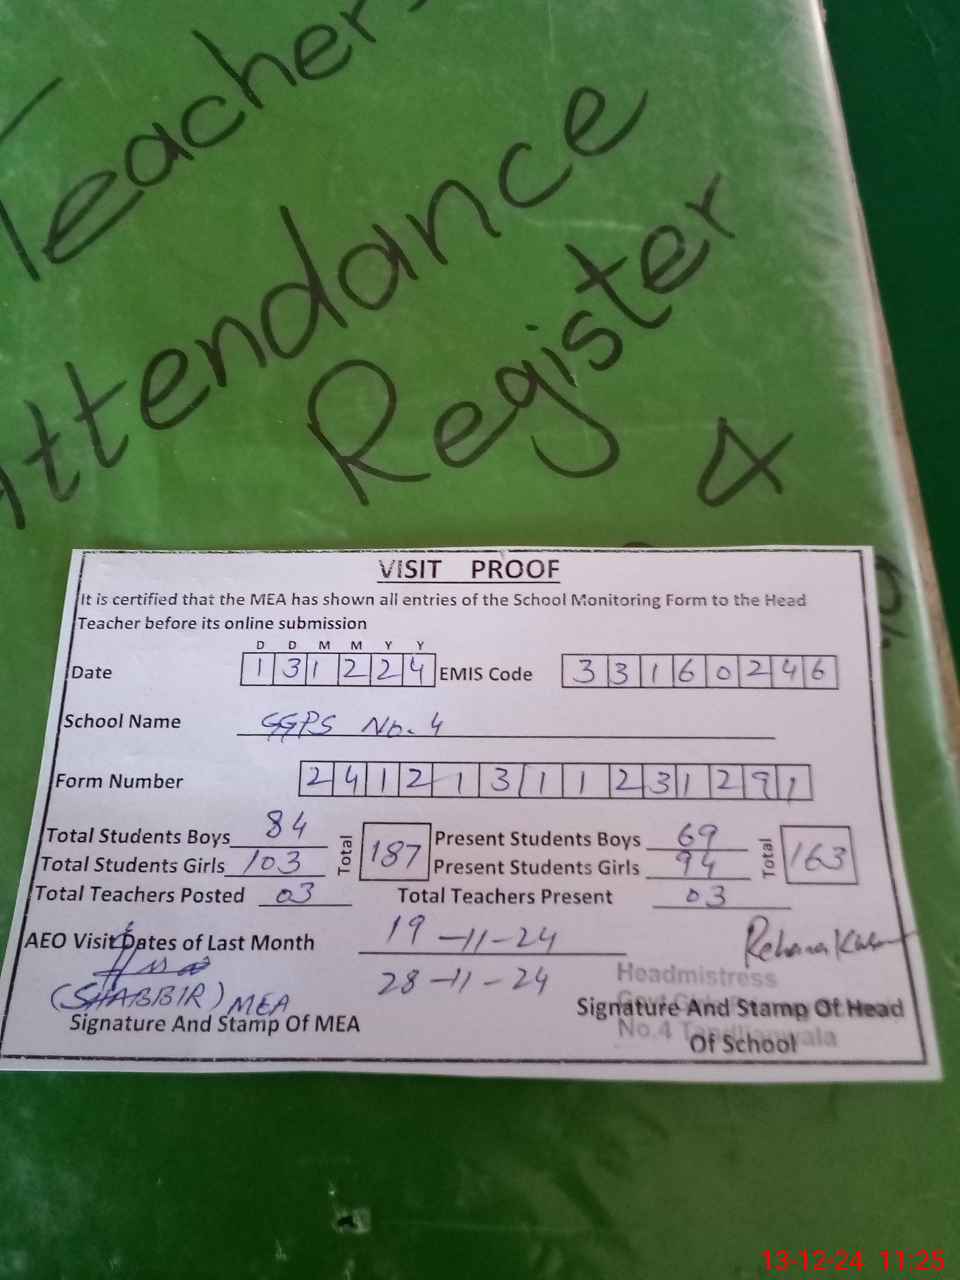 Teachers
Attendance
Register
4
VISIT PROOF
It is certified that the MEA has shown all entries of the School Monitoring Form to the Head
Teacher before its online submission
D D M M Y Y
Date 1 3 1 2 2 4 EMIS Code 3 3 1 6 0 2 4 6
School Name GGPS No. 4
Form Number 2 4 1 2 1 3 1 1 2 3 1 2 9 1
Total Students Boys 84 Total 187 Present Students Boys 69 Total 163
Total Students Girls 103 Present Students Girls 94
Total Teachers Posted 03 Total Teachers Present 03
AEO Visit Dates of Last Month 19-11-24
28-11-24
Rehana
(SHABBIR) MEA
Signature And Stamp Of MEA
Headmistress
Signature And Stamp Of Head
No.4 Tandlianwala
Of School
13-12-24 11:25